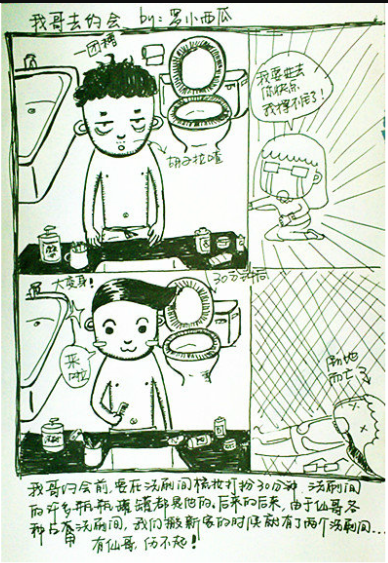 我哥去约会 by:罗小西瓜
一团糟
我要进去
你快点
我撑不住了!
胡子拉喳
大变身!
30分钟后
来啦
倒地
而亡
我哥约会前,要在洗刷间梳妆打扮30分钟 洗刷间
的许多瓶瓶罐罐都是他的,后来的后来,由于仙哥各
种占用洗刷间,我们搬新家的时候就有了两个洗刷间...
有仙哥,伤不起!